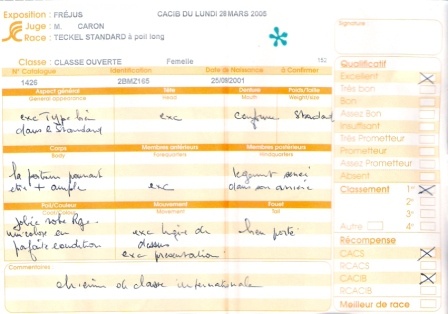 Exposition : FRÉJUS CACIB DU LUNDI 28 MARS 2005
Juge : M. CARON
Race : TECKEL STANDARD à poil long
Signature
Classe : CLASSE OUVERTE Femelle 152
N° Catalogue Identification Date de Naissance à Confirmer
1426 2BMZ165 25/09/2001
Aspect général Tête Denture Poids/taille
General appearance Head Mouth Weight/size
exc Type bien exc Conforme Standard
dans le Standard
Corps Membres antérieurs Membres postérieurs
Body Forequarters Hindquarters
la poitrine pourrait exc legerement serré
être + ample dans son arrière
Poil/Couleur Mouvement Fouet
Movement Tail
jolie robe exc ligne de bien porté
unicolore en dessus
parfaite condition exc présentation
Commentaires
Comments
chienne de classe internationale
Qualificatif
Excellent
Très bon
Bon
Assez Bon
Insuffisant
Très Prometteur
Prometteur
Assez Prometteur
Absent
Classement 1°
2°
3°
Autre 4°
Récompense
CACS
RCACS
CACIB
RCACIB
Meilleur de race